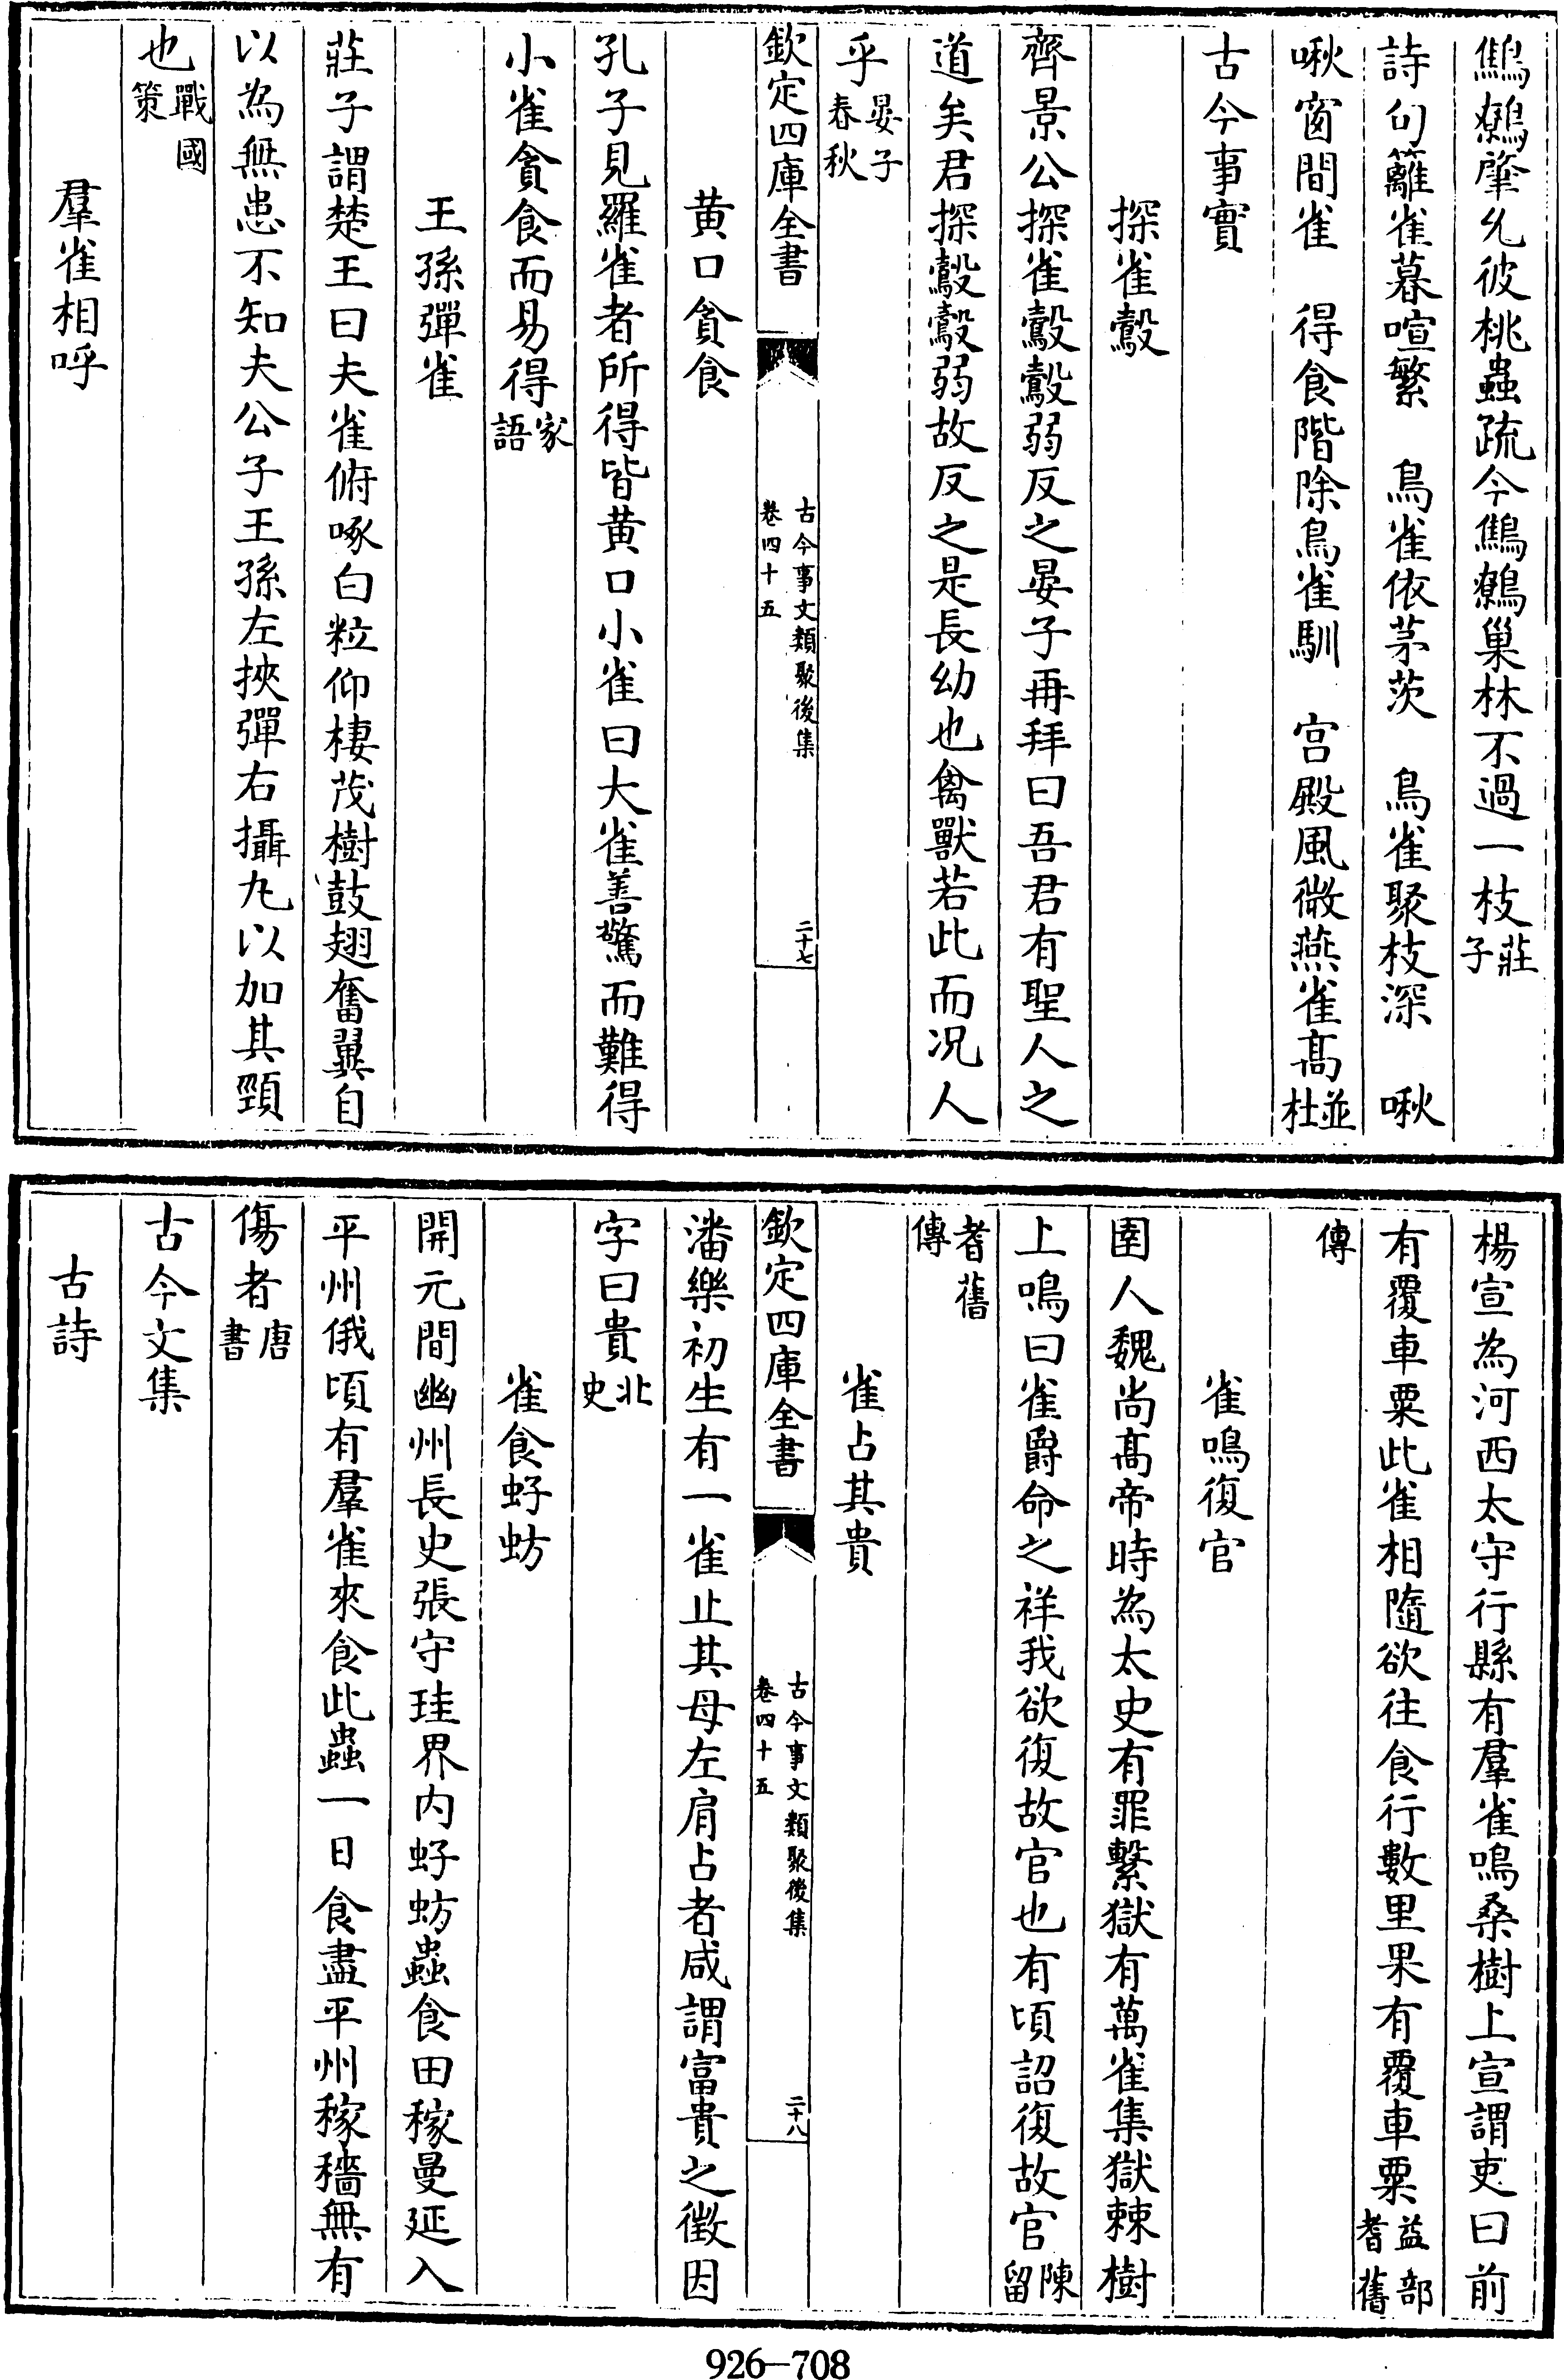 鷦鷯肇允彼桃蟲疏今鷦鷯巢林不過一枝莊子
詩句籬雀暮喧繁　鳥雀依茅茨　鳥雀聚枝深　啾
啾窗間雀　得食階除鳥雀馴　宫殿風微燕雀髙並杜
古今事實
探雀鷇
齊景公探雀鷇鷇弱反之晏子再拜曰吾君有聖人之
道矣君探鷇鷇弱故反之是長幼也禽獸若此而况人
乎晏子春秋
欽定四庫全書
古今事文類聚後集
卷四十五
二十七
黄口貪食
孔子見羅雀者所得皆黄口小雀曰大雀善驚而難得
小雀貪食而易得家語
王孫彈雀
莊子謂楚王曰夫雀俯啄白粒仰棲茂樹鼓翅奮翼自
以為無患不知夫公子王孫左挾彈右攝丸以加其頸
也戰國策
羣雀相呼
楊宣為河西太守行縣有羣雀鳴桑樹上宣謂吏曰前
有覆車粟此雀相隨欲往食行數里果有覆車粟益部耆舊
傳
雀鳴復官
圉人魏尚髙帝時為太史有罪繫獄有萬雀集獄棘樹
上鳴曰雀爵命之祥我欲復故官也有頃詔復故官陳留
耆舊傳
雀占其貴
欽定四庫全書
古今事文類聚後集
卷四十五
二十八
潘樂初生有一雀止其母左肩占者咸謂富貴之徵因
字曰貴北史
雀食虸蚄
開元間幽州長史張守珪界内虸蚄蟲食田稼曼延入
平州俄頃有羣雀來食此蟲一日食盡平州稼穡無有
傷者唐書
古今文集
古詩
926—708